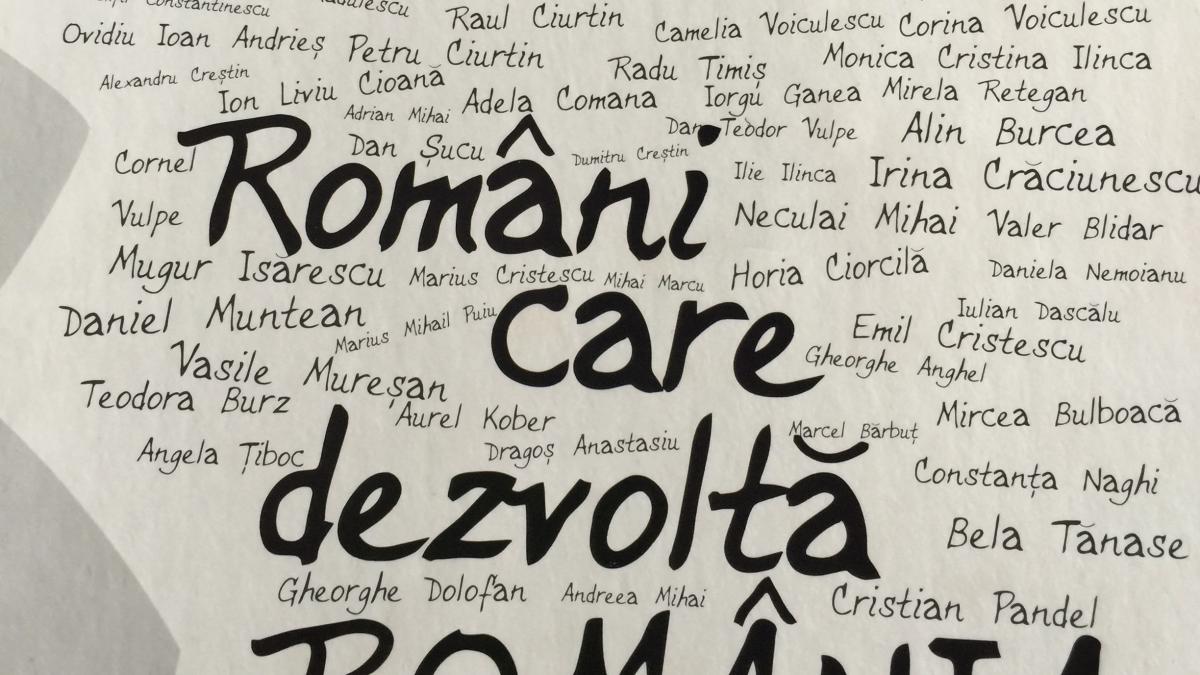 Constantinescu
Raul Ciurtin
Camelia Voiculescu
Corina Voiculescu
Ovidiu Ioan Andrieș
Petru Ciurtin
Radu Timiș
Monica Cristina Ilinca
Alexandru Creștin
Ion Liviu Cioană
Adrian Mihai
Adela Comana
Iorgu Ganea
Mirela Retegan
Dan Teodor Vulpe
Alin Burcea
Cornel
Vulpe
Dan Șucu
Dumitru Creștin
Români
Ilie Ilinca
Irina Crăciunescu
Neculai Mihai
Valer Blidar
Mugur Isărescu
Marius Cristescu
Mihai Marcu
Horia Ciorcilă
Daniela Nemoianu
Daniel Muntean
Marius Mihail Puiu
care
Iulian Dascălu
Emil Cristescu
Vasile Mureșan
Gheorghe Anghel
Teodora Burz
Aurel Kober
Mircea Bulboacă
Angela Țiboc
Dragoș Anastasiu
Marcel Bărbuț
dezvoltă
Constanța Naghi
Bela Tănase
Gheorghe Dolofan
Andreea Mihai
Cristian Pandel
ROMÂNIA